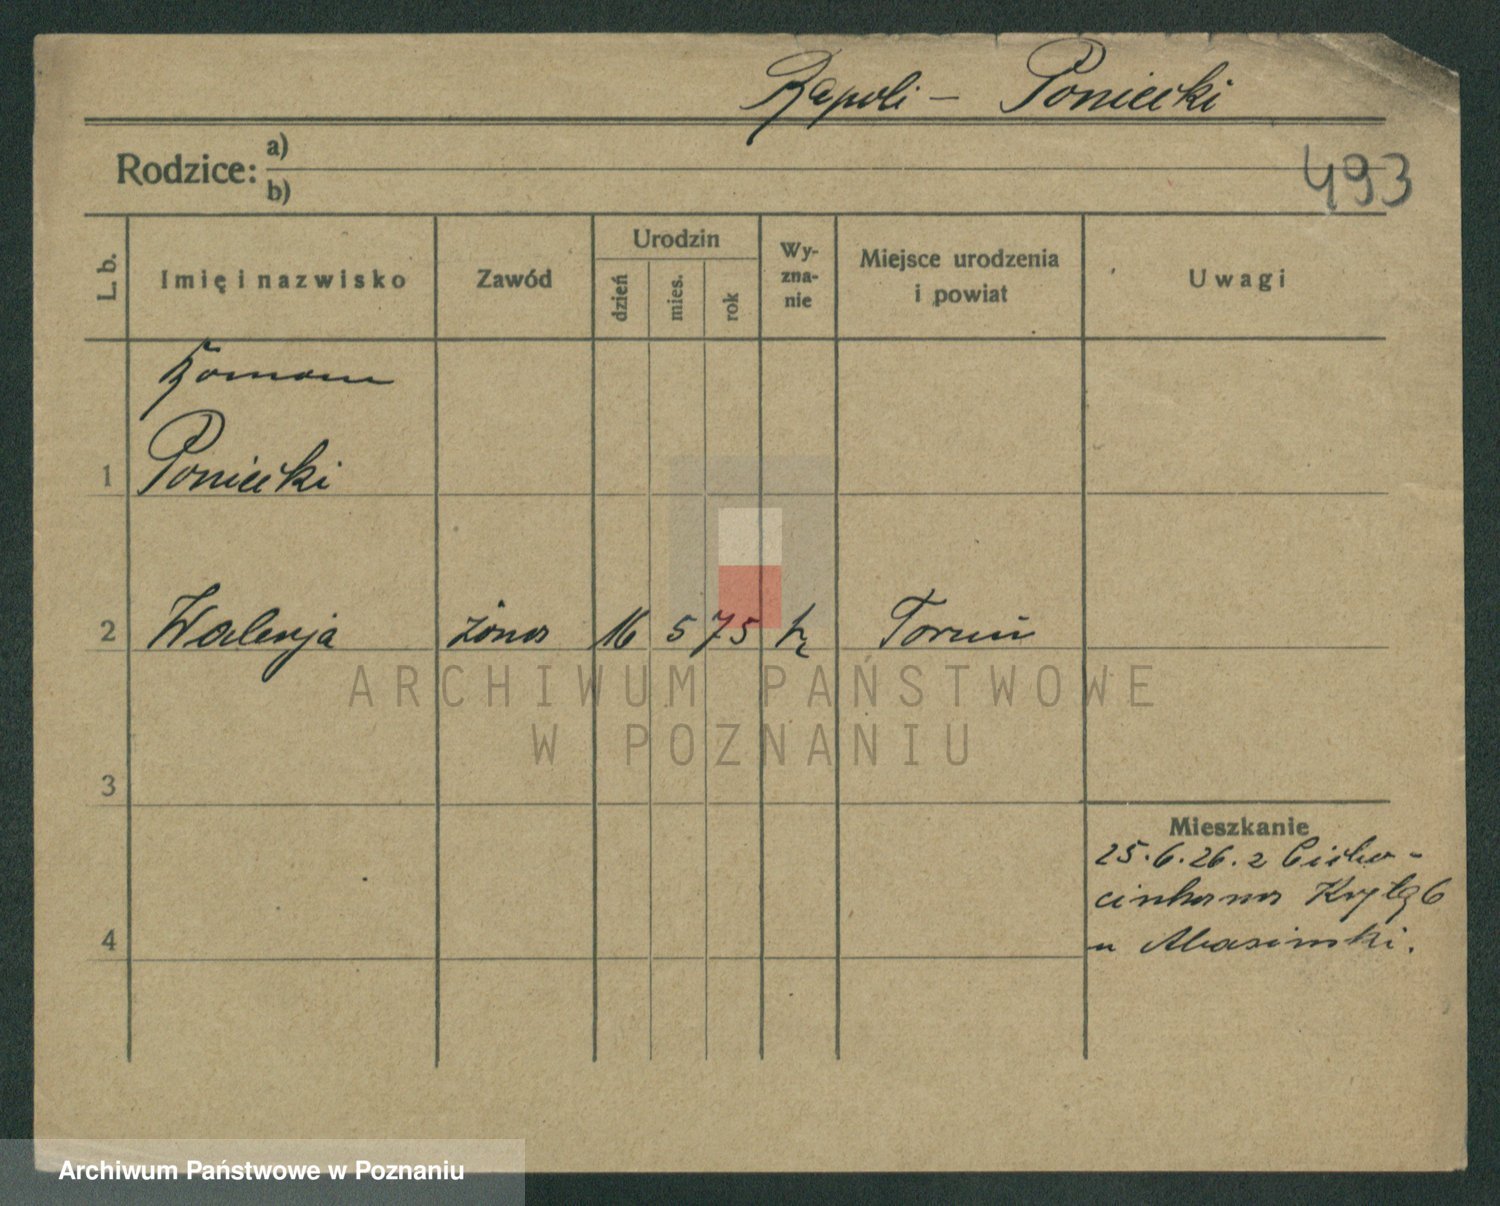 Rapoli - Poniecki
Rodzice: a)
b)
493
L. b.
Imię i nazwisko
Zawód
Urodzin
dzień
mies.
rok
Wy-
zna-
nie
Miejsce urodzenia
i powiat
Uwagi
Roman
1 Poniecki
2 Walerja żona 16 5 75 k Toruń
ARCHIWUM PAŃSTWOWE
W POZNANIU
3
Mieszkanie
25.6.26. z Ciecho-
cinka na Krętą 6
4
u
Archiwum Państwowe w Poznaniu